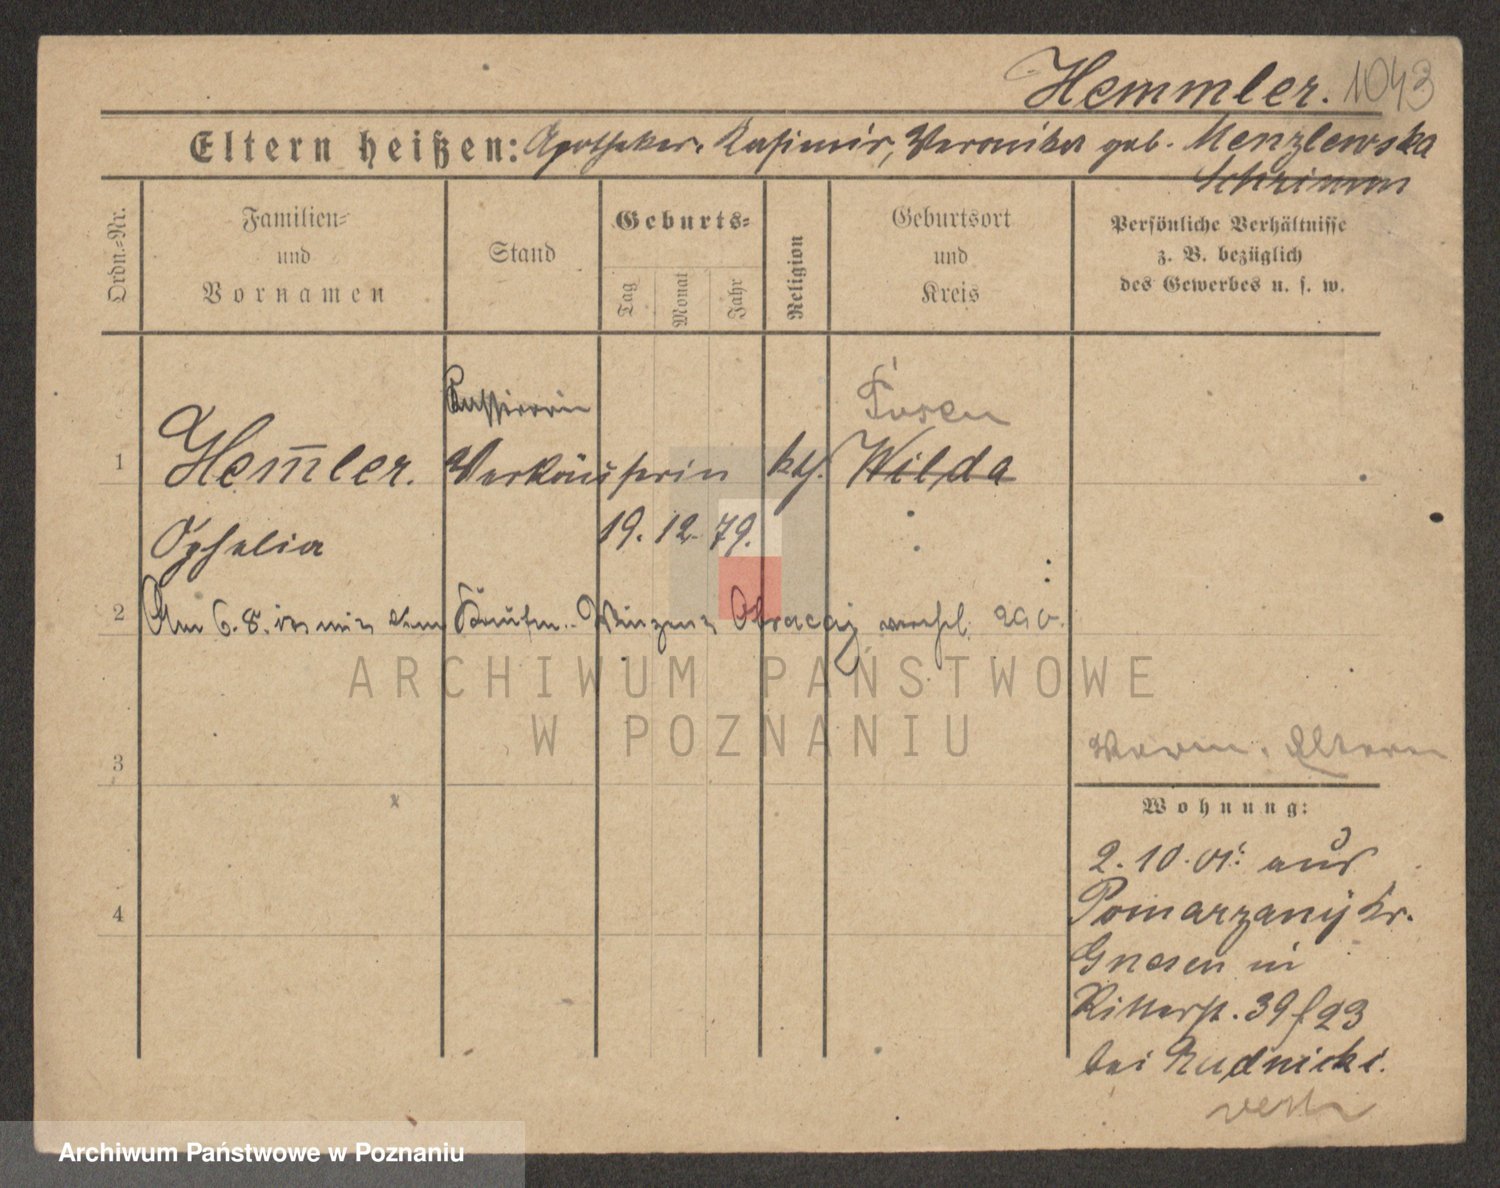 Hemmler. 1043
Eltern heißen: Apotheker. Kasimir, Veronika geb. Menzlewska
Schrimm
Ordn.=Nr.
Familien=
und
Vornamen
Stand
Geburts=
Tag
Monat
Jahr
Religion
Geburtsort
und
Kreis
Persönliche Verhältnisse
z. B. bezüglich
des Gewerbes u. s. w.
Kassiererin
Posen
1 Hem̅ler. Verkäuferin kth. Wilda
Ophelia 19. 12. 79.
2 Am 6. 8. mit dem Kaufm. Winzent verehel.
ARCHIWUM PAŃSTWOWE
W POZNANIU
3
Eltern
Wohnung:
2. 10. 01: aus
4 Pomarzany Kr.
Gnesen in
Ritterst. 39 f 23
bei Rudnicki.
Archiwum Państwowe w Poznaniu